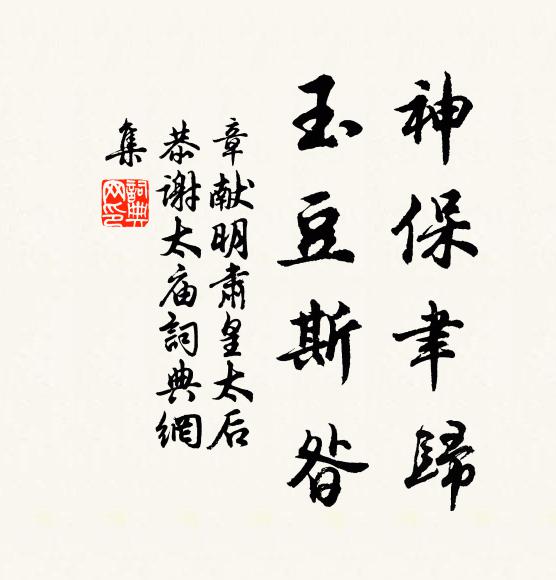 神保聿歸
玉豆斯昝
章献明肅皇太后
恭謝太庙詞典網
集
詞典
网印